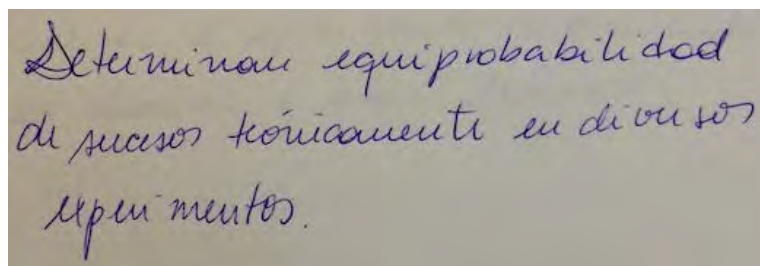 Determinan equiprobabilidad
de sucesos teóricamente en diversos
experimentos.